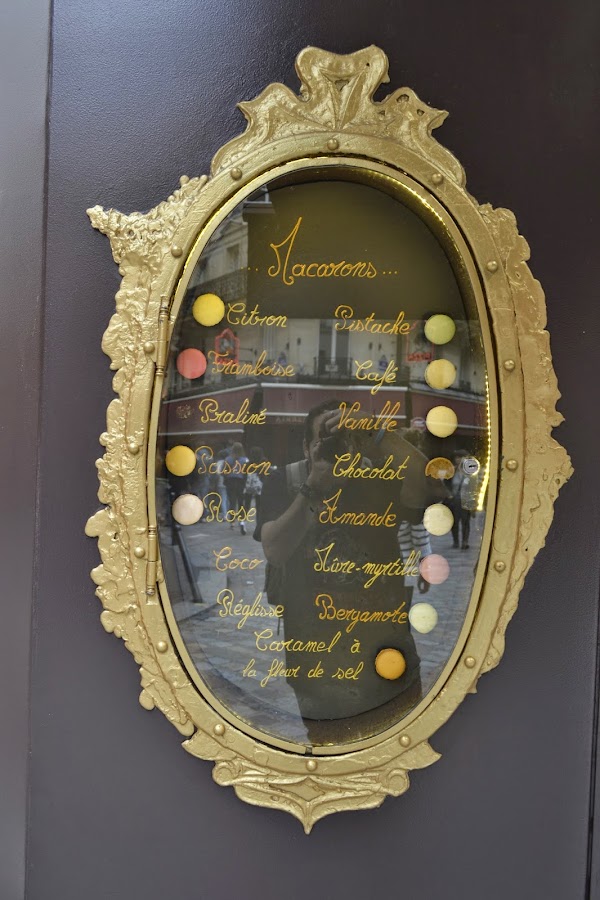 .. Macarons...
Citron Pistache
Framboise Café
Praliné Vanille
Passion Chocolat
Rose Amande
Coco Mûre-myrtille
Réglisse Bergamote
Caramel à
la fleur de sel